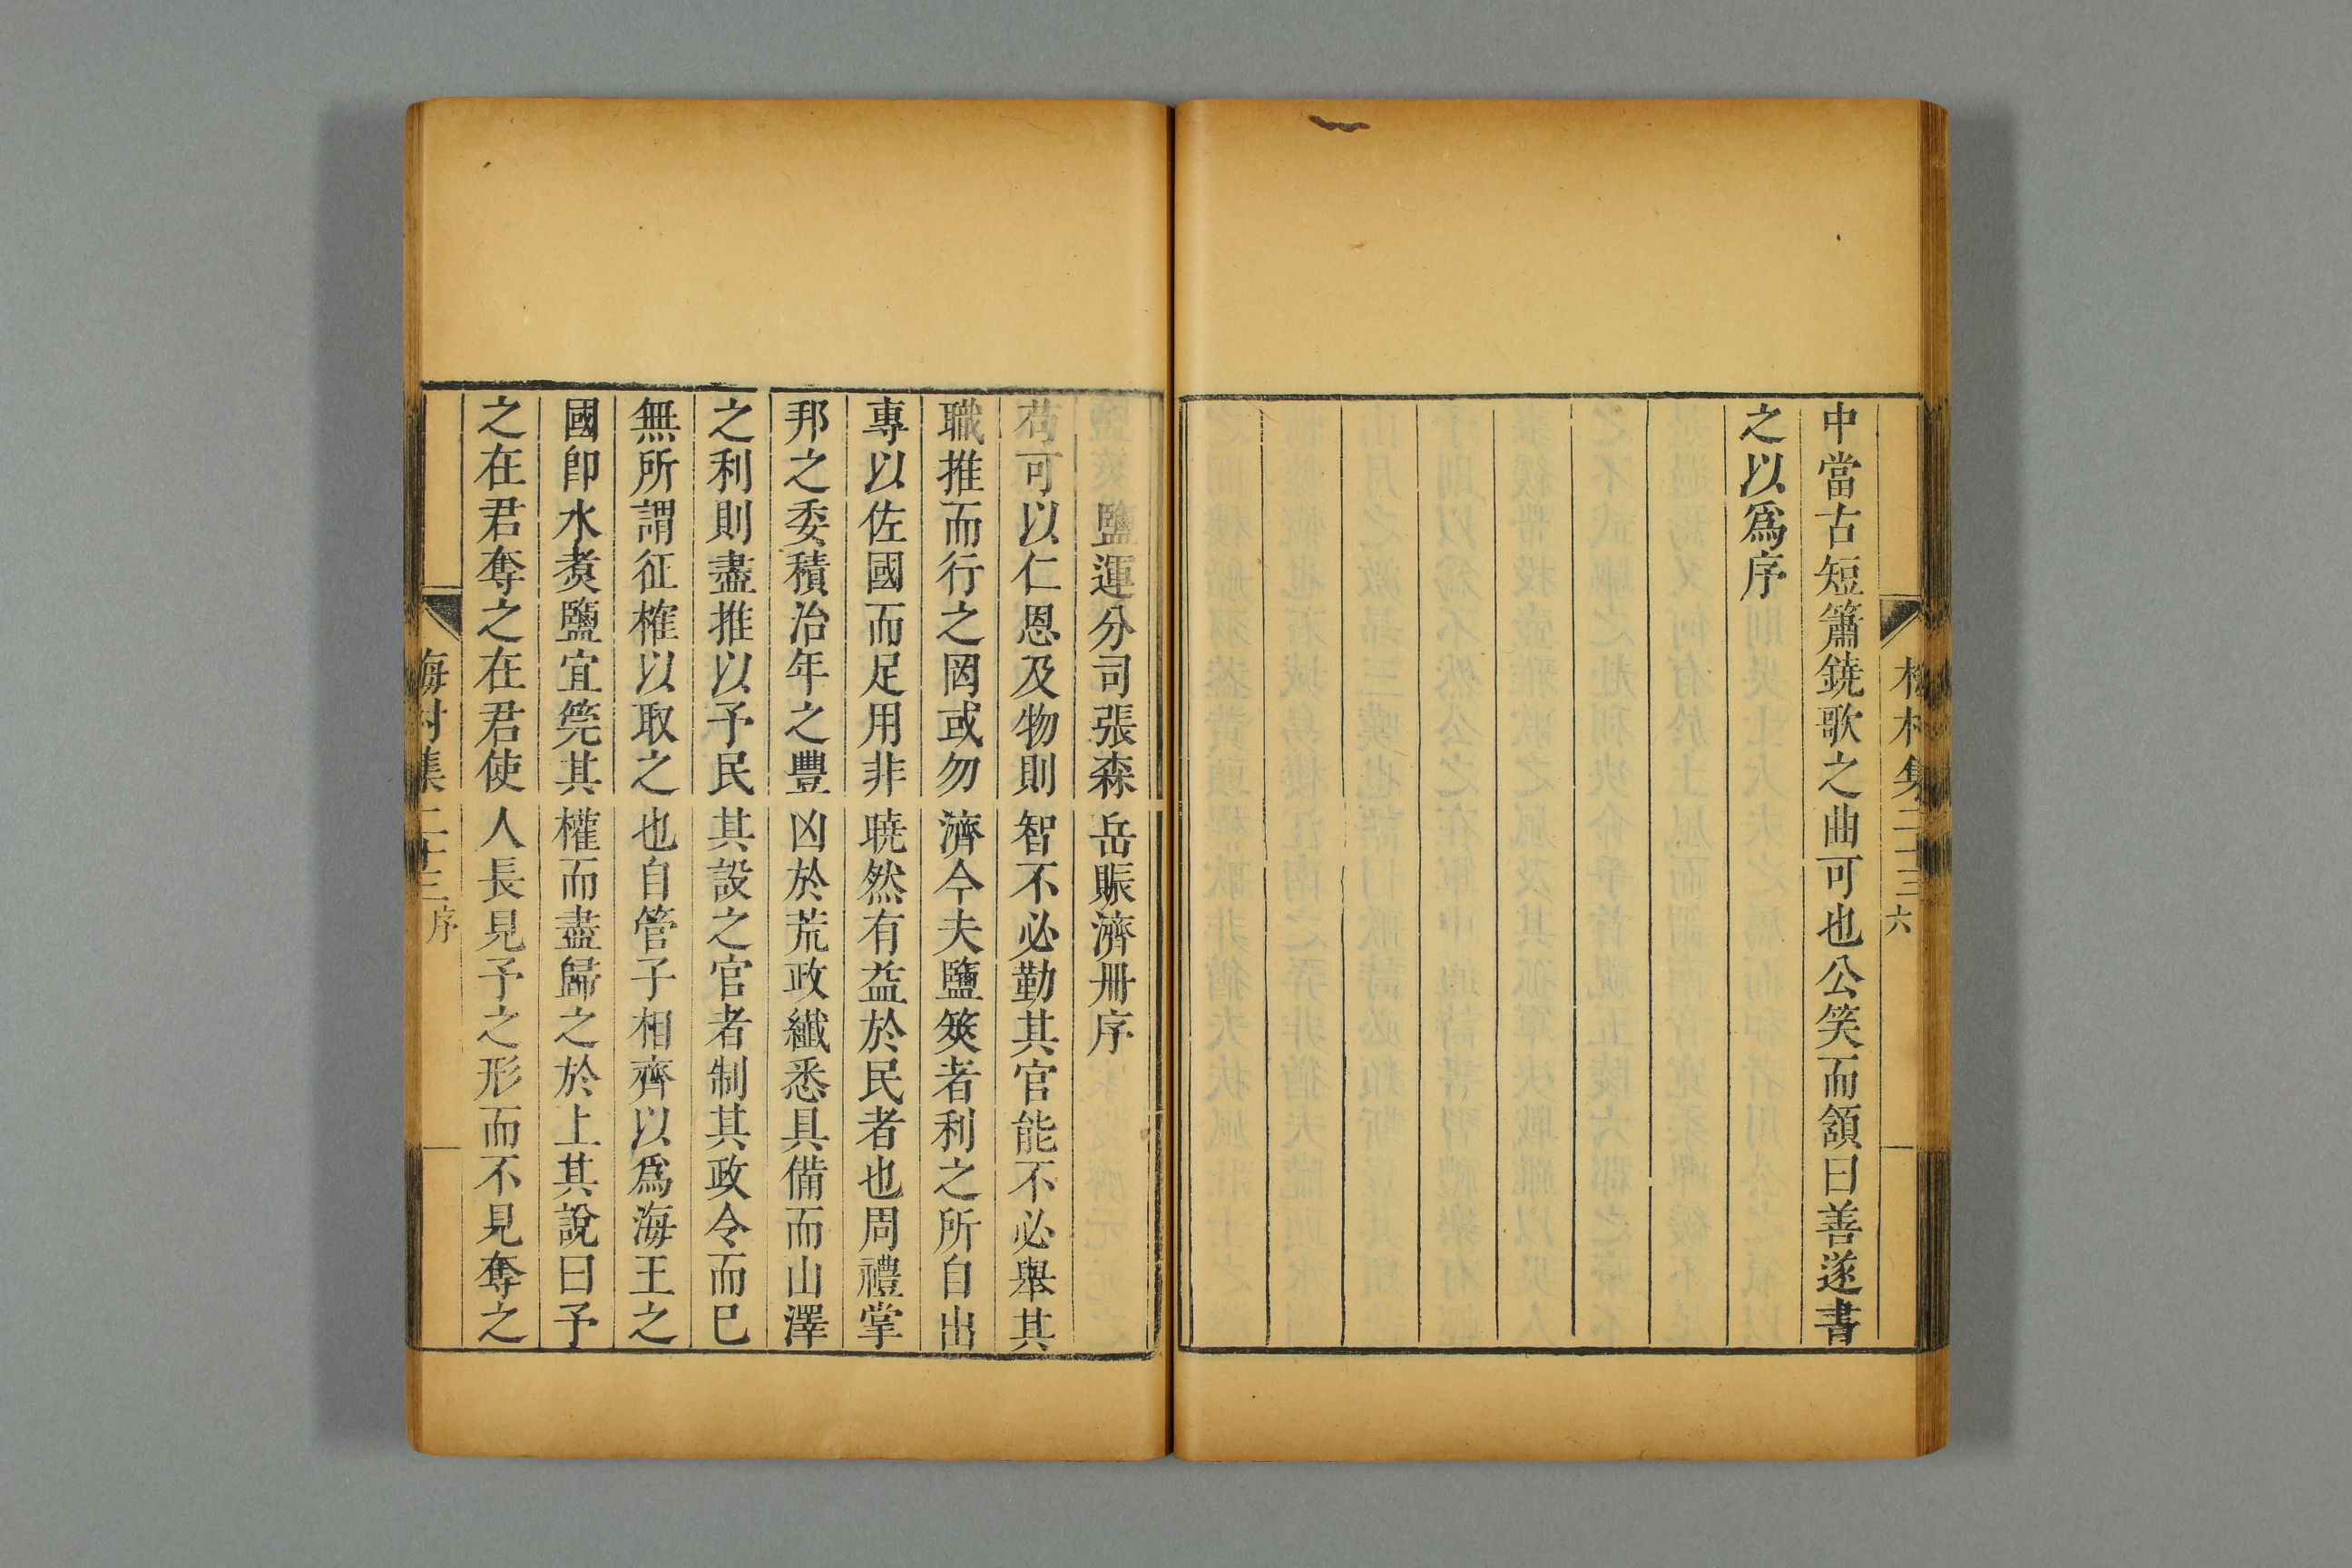 村集
二十三
六
中當古短簫鐃歌之曲可也公笑而頷曰善遂書
之以爲序
鹽運分司張森岳賑濟冊序
苟可以仁恩及物則智不必勤其官能不必舉其
職推而行之罔或勿濟今夫鹽筴者利之所自出
專以佐國而足用非曉然有益於民者也周禮掌
邦之委積治年之豐凶於荒政纖悉具備而山澤
之利則盡推以予民其設之官者制其政令而巳
無所謂征榷以取之也自管子相齊以爲海王之
國卽水煑鹽宜筦其權而盡歸之於上其說曰予
之在君奪之在君使人長見予之形而不見奪之
集
二十三
序